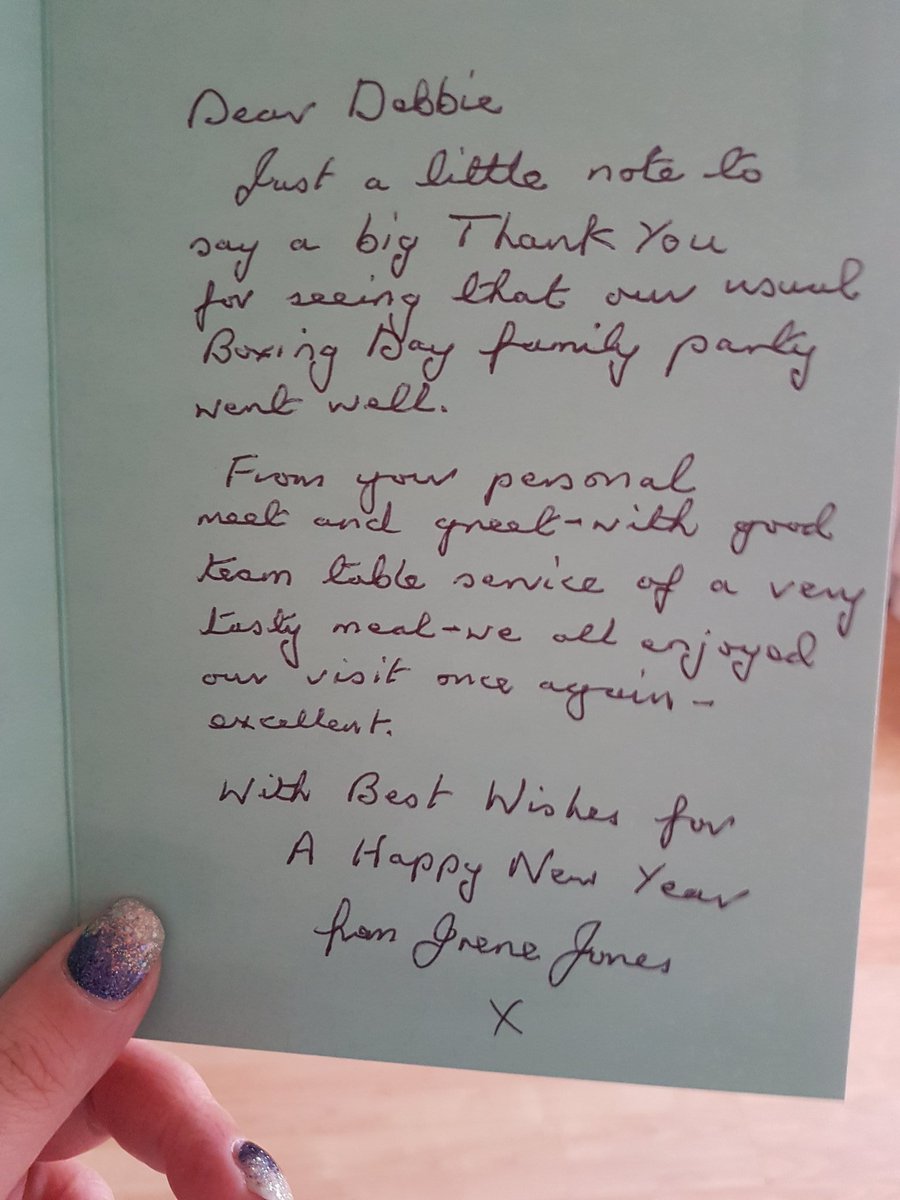 Dear Debbie
Just a little note to
say a big Thank You
for seeing that our usual
Boxing Day family party
went well.
From your personal
meet and greet-with good
team table service of a very
tasty meal-we all enjoyed
our visit once again-
excellent.
With Best Wishes for
A Happy New Year
from Irene Jones
X